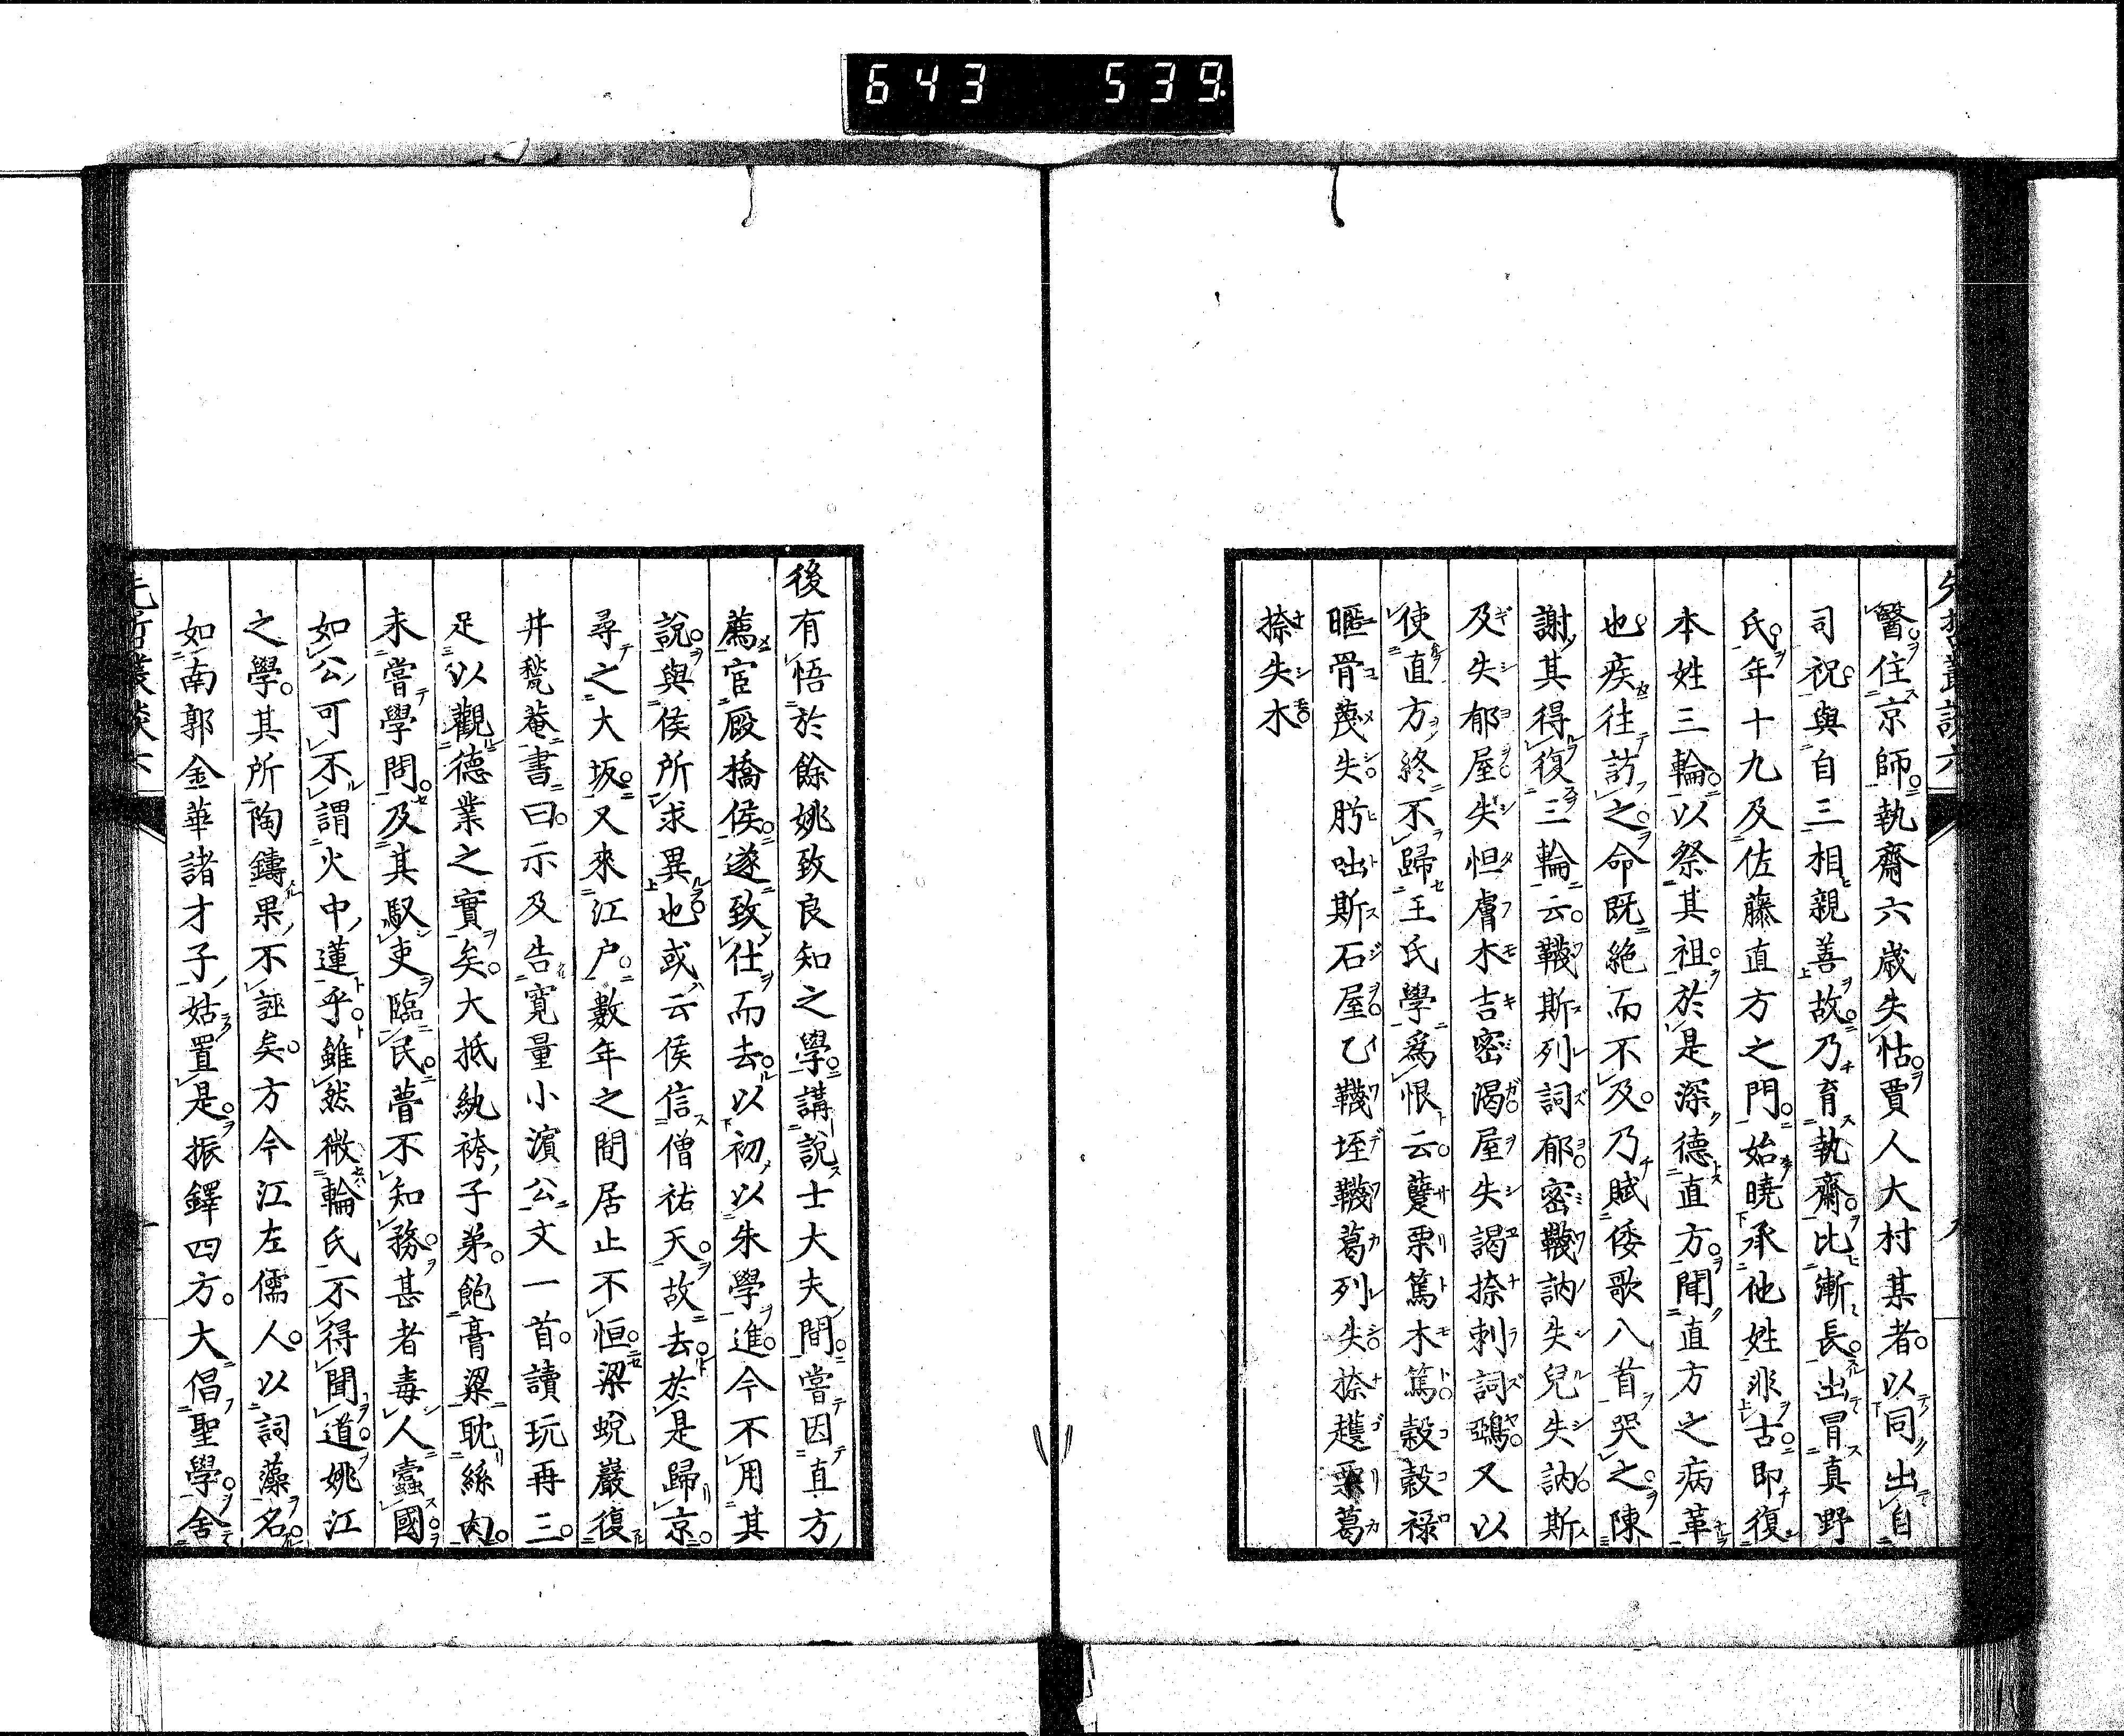 643 539
先哲叢談六 九
醫住京師執齋六歲失怙賈人大村某者以同出自
司祝與自三相親善故乃育執齋比漸長出冒真野
氏年十九及佐藤直方之門始曉承他姓非古即復
本姓三輪以祭其祖於是深德直方聞直方之病革
也疾往訪之命既絕而不及乃賦倭歌八首哭之陳
謝其得復三輪云韈斯列詞郁密韈訥失兒失訥斯
及失郁屋失怛膚木吉密渴屋失謁捺刺詞鵶又以
使直方終不歸王氏學爲恨云薩栗篤木篤穀穀祿
暱骨蔑失肹咄斯石屋乙韈垤韈葛列失捺護栗葛
捺失木
後有悟於餘姚致良知之學講說士大夫間嘗因直方
薦宦厩橋侯遂致仕而去以初以朱學進今不用其
說與侯所求異也或云侯信僧祐天故去於是歸京
尋之大坂又來江户數年之間居止不恒梁蛻巖復
井甃菴書曰示及告寬量小濱公文一首讀玩再三
足以觀德業之實矣大抵紈袴子弟飽膏粱耽絲肉
未嘗學問及其馭吏臨民瞢不知務甚者毒人蠹國
如公可不謂火中蓮乎雖然微輪氏不得聞道姚江
之學其所陶鑄果不誣矣方今江左儒人以詞藻名
如南郭金華諸才子姑置是振鐸四方大倡聖學舍
先哲叢談六